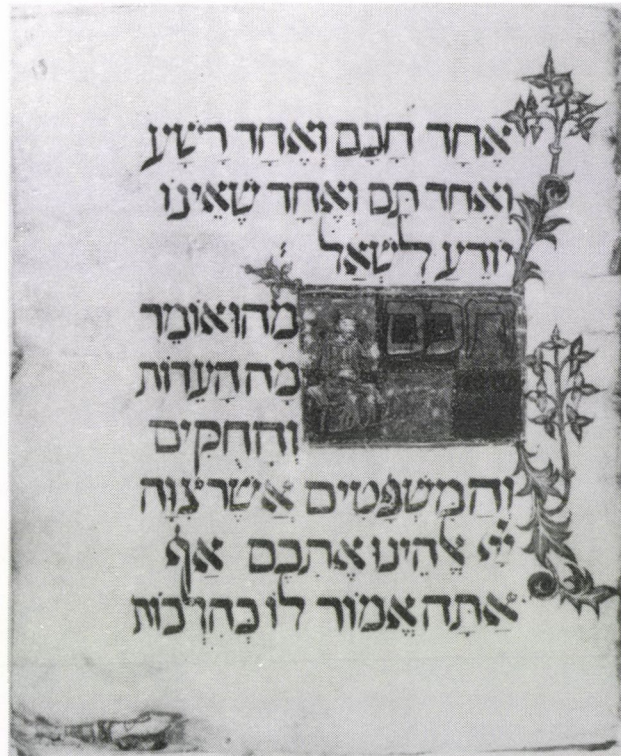 אֶחָד חָכָם וְאֶחָד רָשָׁע
וְאֶחָד תָּם וְאֶחָד שֶׁאֵינוֹ
יוֹדֵעַ לִשְׁאַל
חכם
מְהוּאוֹמֵר
מָה הָעֵדוֹת
וְהַחֻקִּים
וְהַמִשְׁפָּטִים אֲשֶׁר צִוָּה
יְיָ אֱלֹהֵינוּ אֶתְכֶם אַף
אַתָּה אֱמוֹר לוֹ כְּהִלְכוֹת